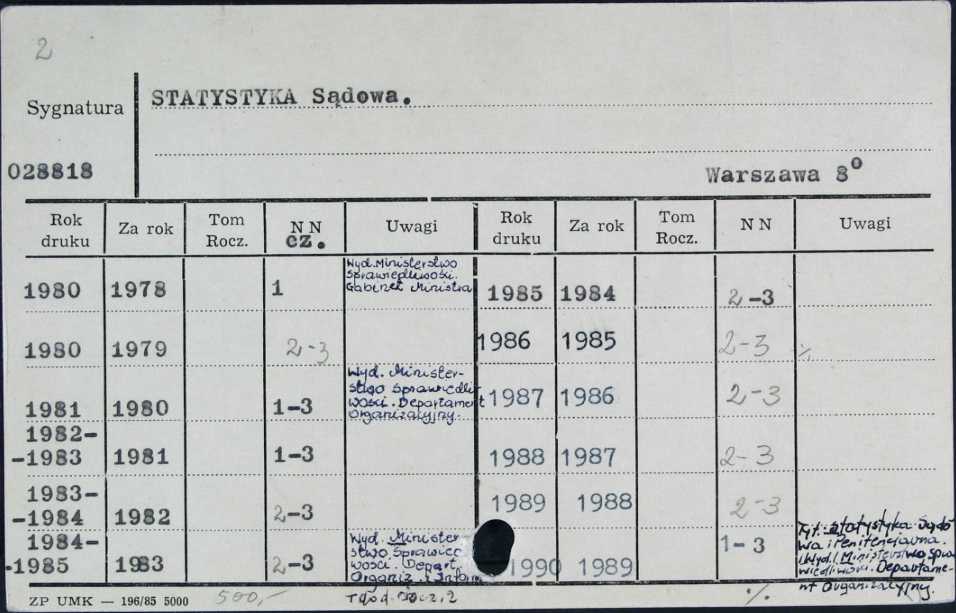 2
Sygnatura
STATYSTYKA Sądowa.
028818
Warszawa 8°
Rok druku Za rok Tom Rocz. NN cz. Uwagi Rok druku Za rok Tom Rocz. NN Uwagi
1980 1978 1 Wyd. Ministerstwo
Sprawiedliwości.
Gabinet Ministra
1985 1984 2-3
1980 1979 2-3
1986 1985 2-3
1981 1980 1-3 Wyd. Minister-
stwo Sprawiedli-
wości. Departament
Organizacyjny.
1987 1986 2-3
1982-
-1983 1981 1-3
1988 1987 2-3
1983-
-1984 1982 2-3
1989 1988 2-3
1984-
-1985 1983 2-3 Wyd. Minister-
stwo Sprawied
wości. Depart.
Organiz. i Inform
1990 1989 1-3 Tyt.: Statystyka Sądo
wa i Penitencjarna.
Wyd. Ministerstwo Spra
wiedliwości. Departame-
nt Organizacyjny.
ZP UMK — 196/85 5000 500,-